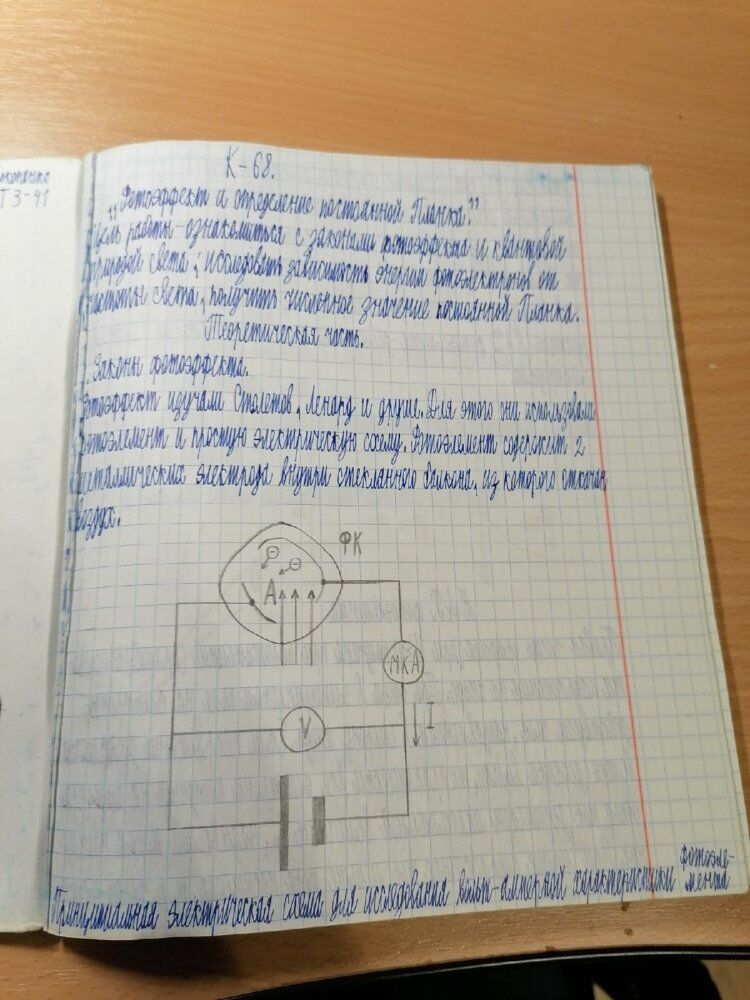 К-68.
„Фотоэффект и определение постоянной Планка."
Цель работы - ознакомиться с законами фотоэффекта и квантовой
природой света; исследовать зависимость энергии фотоэлектронов от
частоты света, получить численное значение постоянной Планка.
Теоретическая часть.
Законы фотоэффекта.
Фотоэффект изучали Столетов, Ленард и другие. Для этого они использовали
фотоэлемент и простую электрическую схему. Фотоэлемент содержит 2
металлических электрода внутри стеклянного балкона, из которого откачан
воздух.
ФК
А
МКА
V
I
Принципиальная электрическая схема для исследования вольт-амперной характеристики фотоэле-
мента